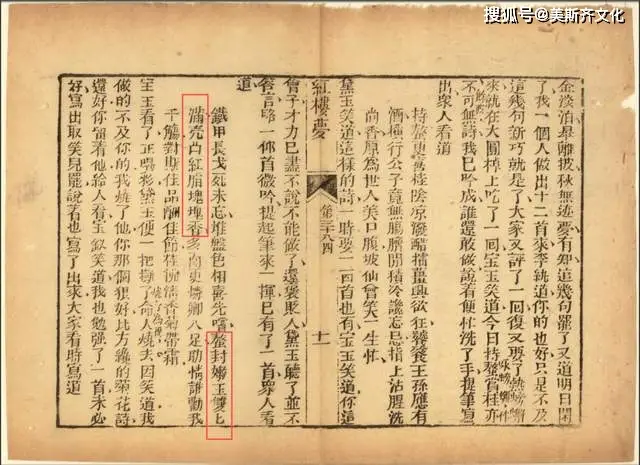 搜狐号@美斯齐文化
金淡泊翠離披秋無迹夢有知這幾句罷了又道明日閑
了我一個人做出十二首來李紈道你的也好只是不及
這幾句新巧就是了大家又評了一回復又要了熱螃蠏
來就在大圓棹上吃了一回宝玉笑道今日持螯賞桂亦
不可無詩我已吟成誰還敢做說着便忙洗了手提筆寫
出衆人看道
持螯更喜桂陰凉潑醋擂薑興欲狂饕餮王孫應有
酒橫行公子竟無腸臍間積冷讒忘忌指上沾腥洗
尚香原為世人美口腹坡仙曾笑一生忙
黛玉笑道這樣的詩一時要一百首也有宝玉笑道你這
紅樓夢
十一
會子才力已盡不說不能做了還褒貶人黛玉聽了並不
荅言略一仰首微吟提起筆來一揮已有了一首眾人看
道
鐵甲長戈死未忘堆盤色相喜先嚐螯封嫩玉雙〻
滿壳凸紅脂塊塊香多肉更憐卿八足助情誰勸我
千觴對斯佳品酬佳節桂拂清香菊帶霜
宝玉看了正喝彩黛玉便一把撕了命人燒去因笑道我
做的不及你的我燒了他你那個狠好比方纔的菊花詩
還好你留着他給人看宝釵笑道我也勉强了一首未必
好寫出取笑兒罷說着也寫了出來大家看時寫道